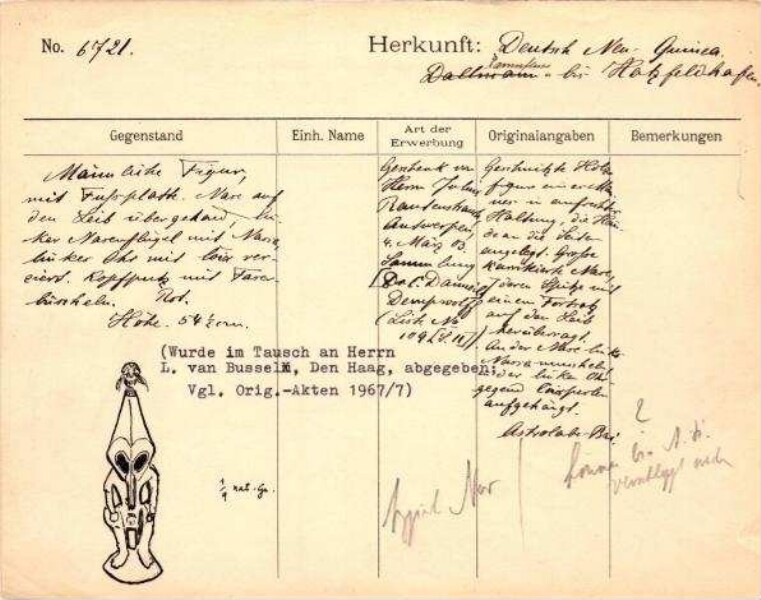 No. 6721.
Herkunft: Deutsch Neu-Guinea.
Dallmann - bis Hatzfeldhafen.
Gegenstand
Einh. Name
Art der Erwerbung
Originalangaben
Bemerkungen
Männliche Figur,
mit Fussplatte. Nase auf
den Leib übergehend, lin-
ker Nasenflügel mit Nassa
linker Ohr mit Coix ver-
ziert. Kopfputz mit Faser-
büscheln. Rot.
Höhe. 54½ cm.
Geschenk von
Herrn
Rautenstrauch
Antwerpen,
4. März 03.
Sammlung
Dempwolff
(Liste No
Geschnitzte Holz-
figur eines Man-
nes in aufrechter
Haltung, die Hän-
de an die Seiten
angelegt. Grosse
karrikierte Nase,
deren Spitze mit
einem Fortsatz
auf den Leib
herüberragt.
An der Nase links
Nassamuscheln,
der linken Ohr-
gegend Coixperlen
aufgehängt.
Astrolabe-Bai.
(Wurde im Tausch an Herrn
L. van Bussel, Den Haag, abgegeben;
Vgl. Orig.-Akten 1967/7)
nat. Gr.
?